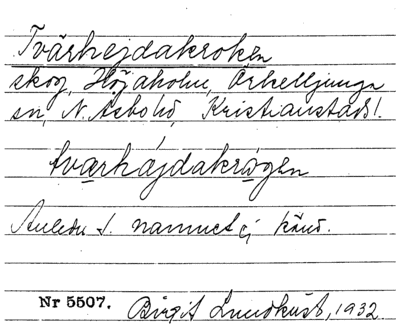 Tvärhejdakroken
skog, Höjaholm, Örkelljunga
sn, N. Åsbo hd, Kristianstads l.
tvarhájdakrǫgen
Anledn t. namnet ej känd.
Nr 5507. Birgit Lundkvist, 1932